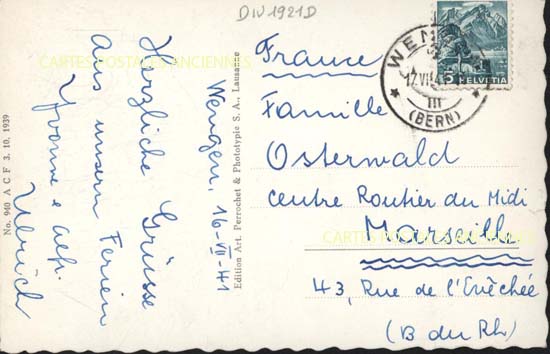 DIV1921D
CARTES POSTALES ANCIENNES
Wengen, 16-VII-41
Herzliche Grüsse
aus unsern Ferien
Yvonne e
Ulrich
No. 940 A C F 3. 10. 1939
Edition Art. Perrochet & Phototypie S. A., Lausanne
WEN
17.VII.41
III
(BERN)
5 HELVETIA
France
Famille
Osterwald
Centre Routier du Midi
Marseille
CARTES POSTALES ANCIENNES
43, Rue de l'Evêchée
(B du Rh)